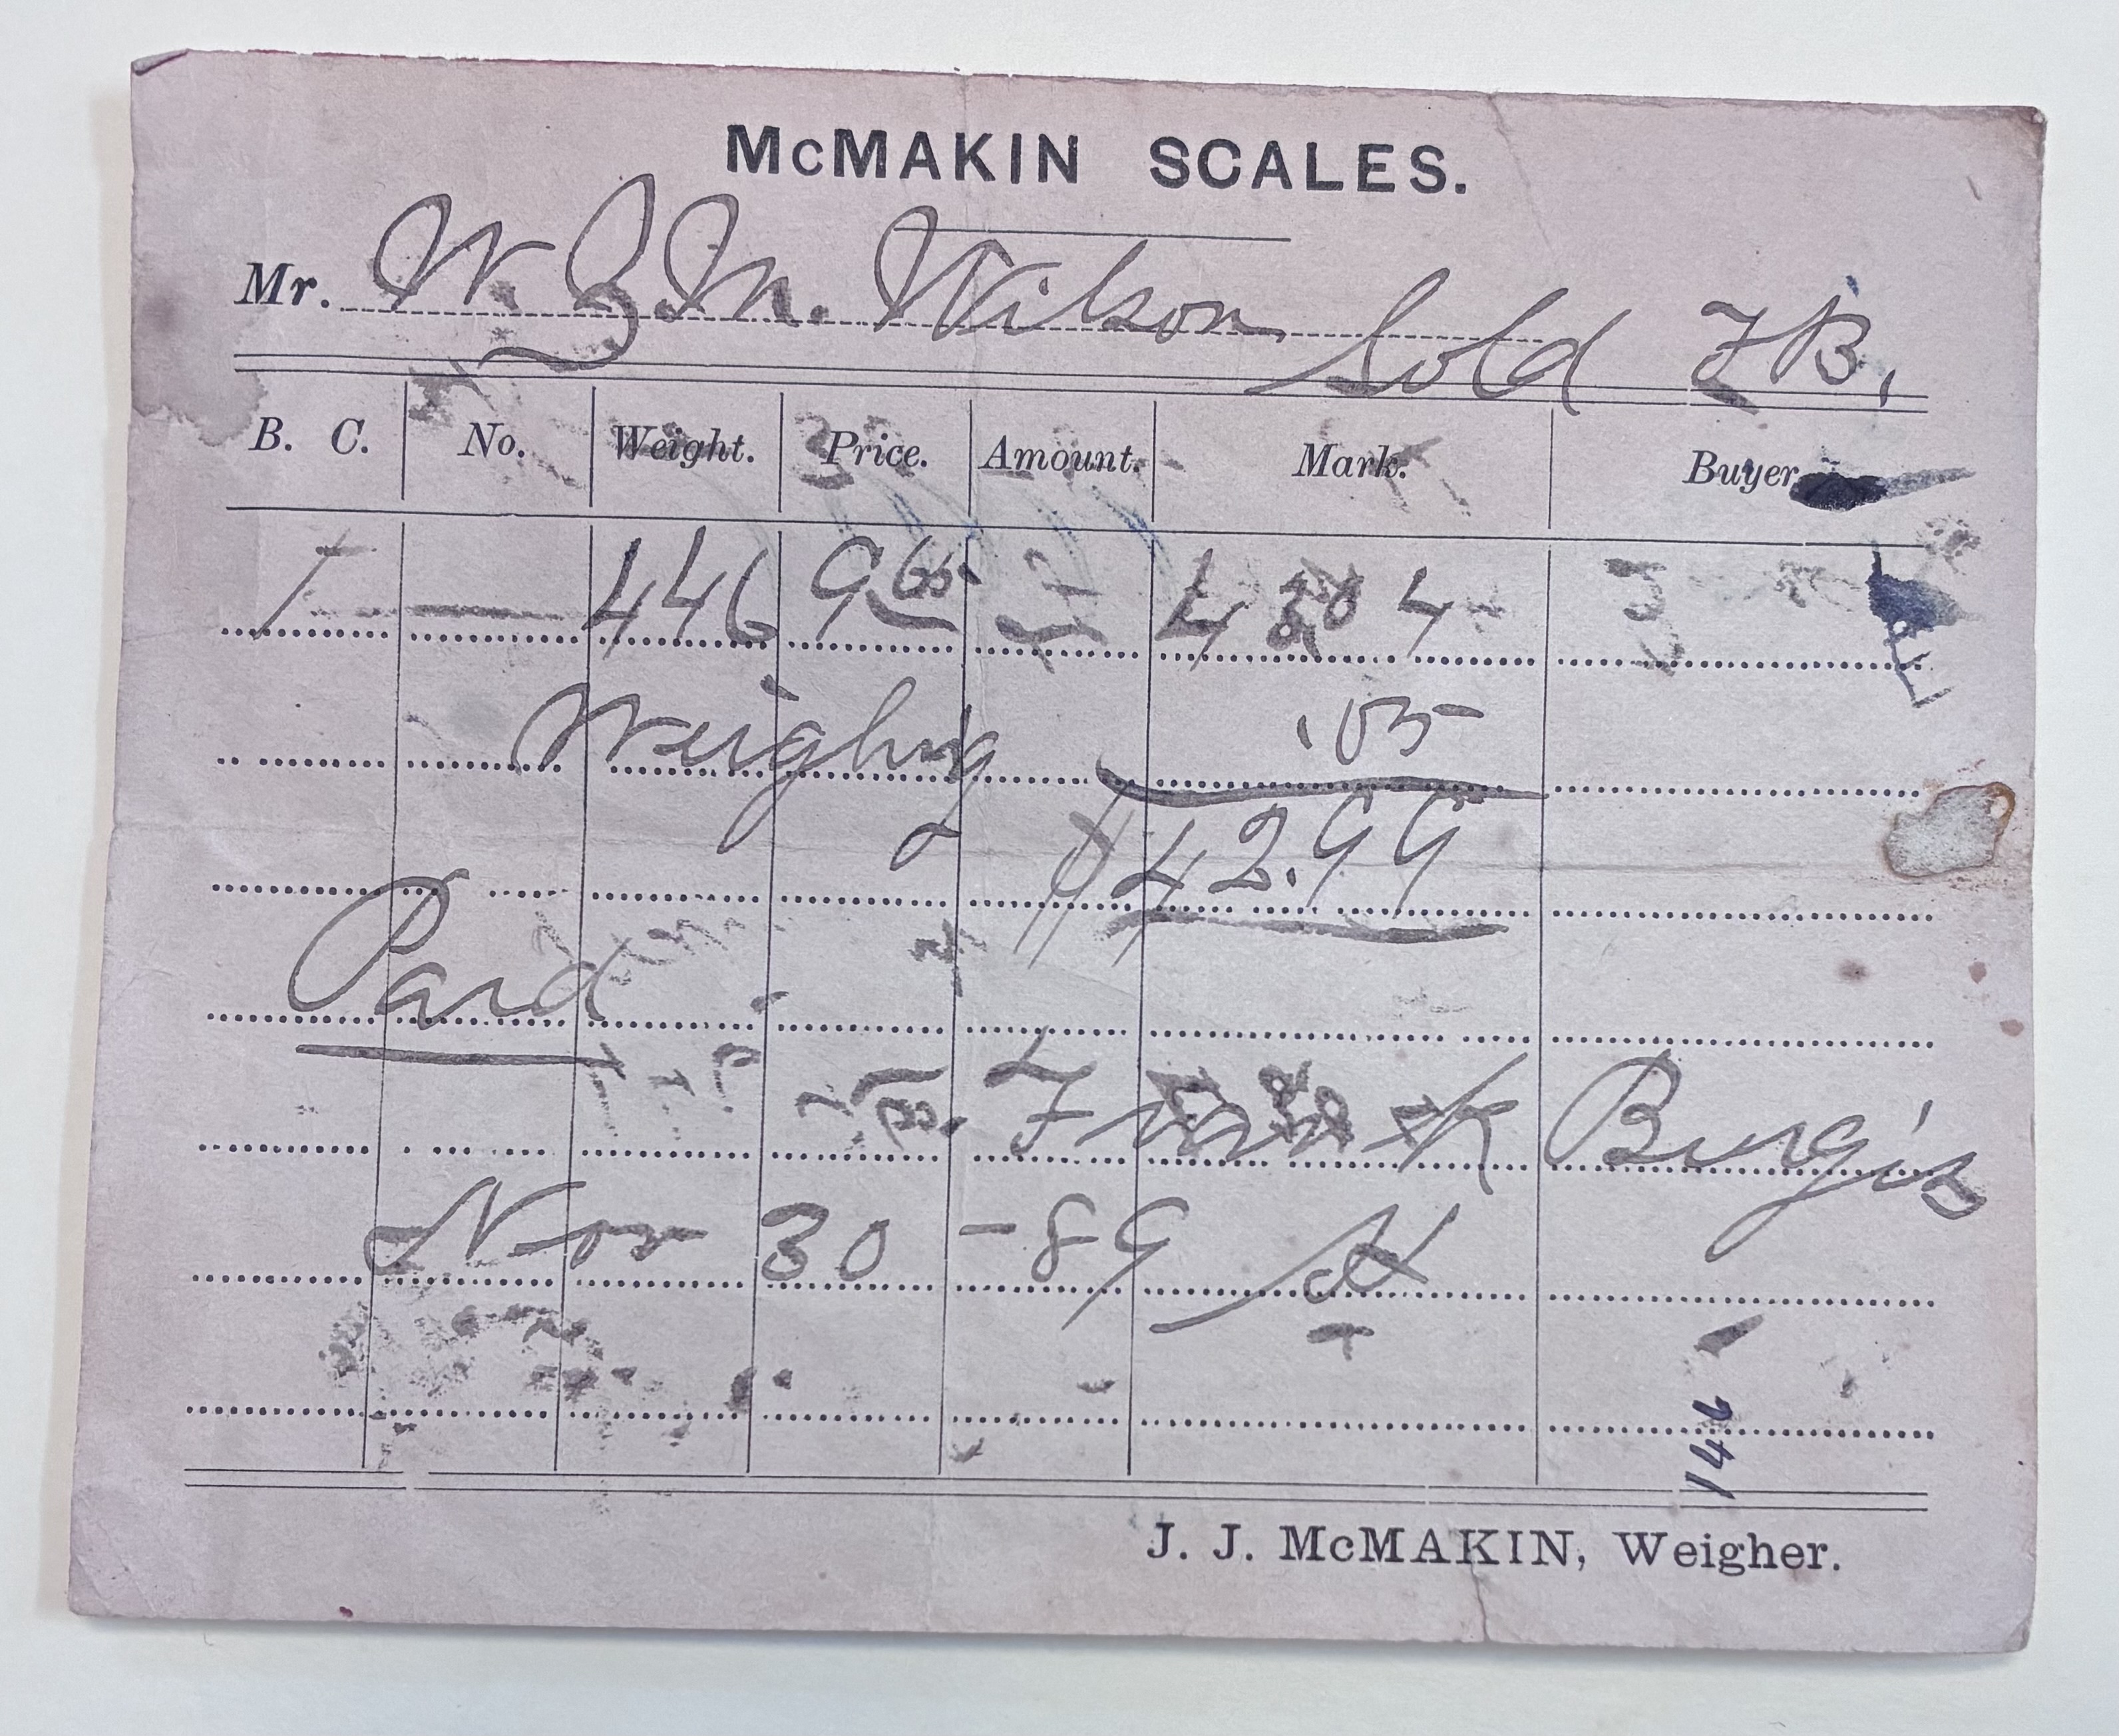 McMAKIN SCALES.
Mr. W. Z. M. Wilson Sold FB.
B. C. No. Weight. Price. Amount. Mark. Buyer
1 — 446 9 65 4 4
Weighing .05
$42.99
Paid
Frank Burgis
Nov 30 -89
146
J. J. McMAKIN, Weigher.